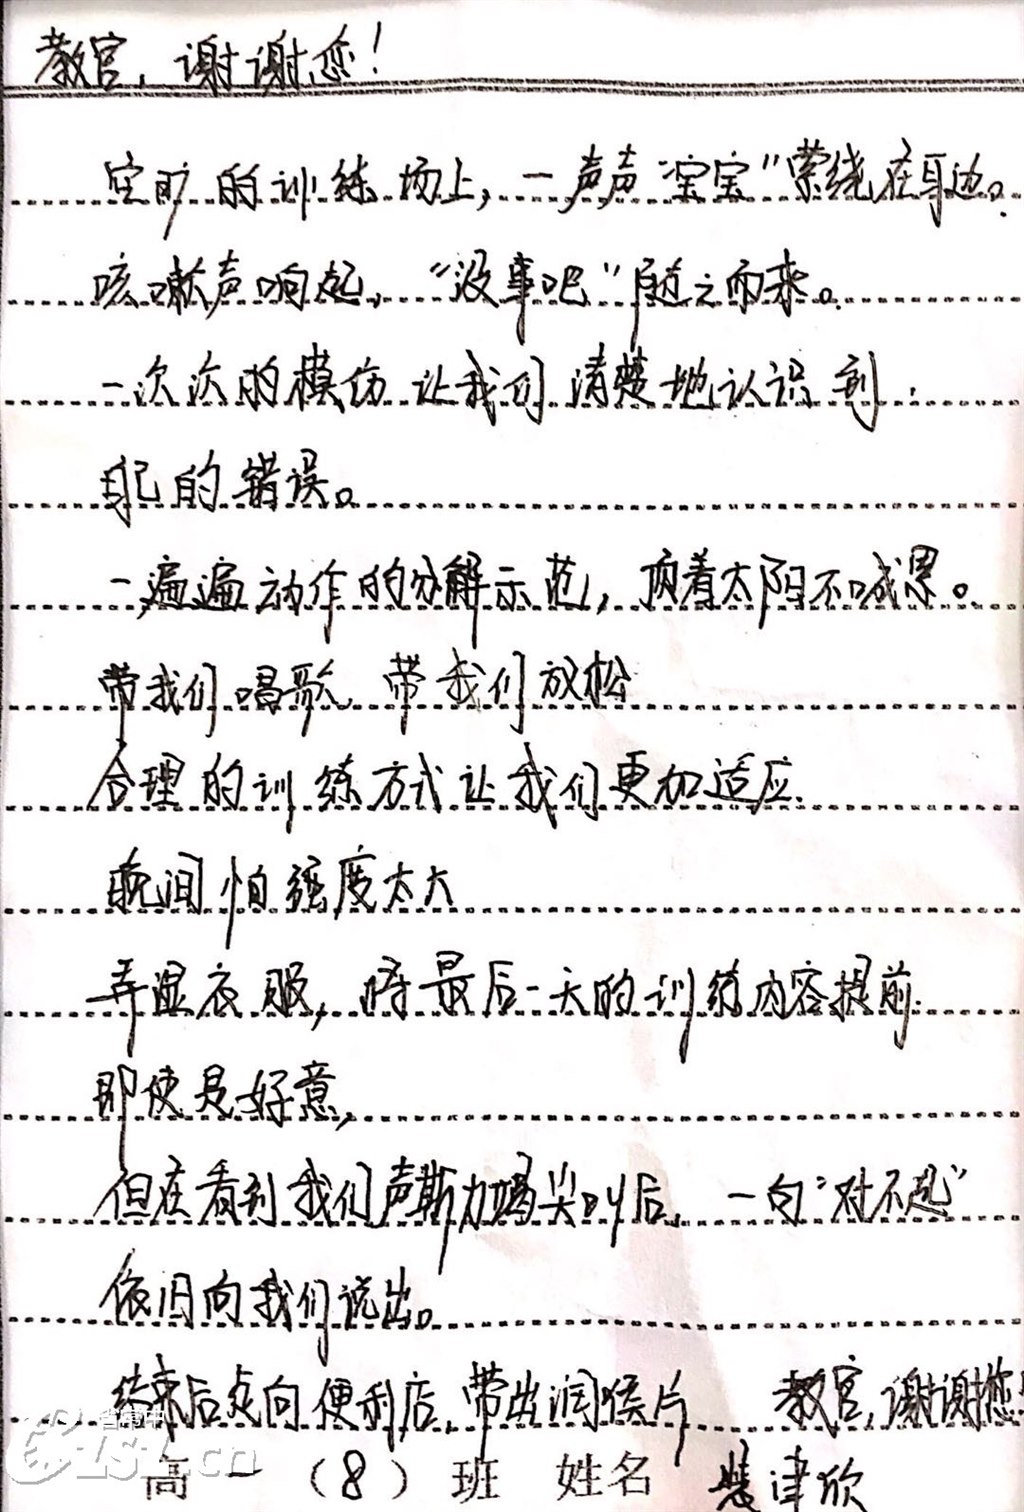 教官，谢谢您！
空旷的训练场上，一声声“宝宝”萦绕在耳边。
咳嗽声响起，“没事吧”随之而来。
一次次的模仿让我们清楚地认识到
自己的错误。
一遍遍动作的分解示范，顶着太阳不喊累。
带我们唱歌，带我们放松
合理的训练方式让我们更加适应.
晚间怕强度太大
弄湿衣服，将最后一天的训练内容提前.
即使是好意，
但在看到我们声斯力竭尖叫后，一句“对不起”
依旧向我们说出。
结束后走向便利店，带出润候片 教官，谢谢您！
高一（8）班 姓名 津欣
省常中